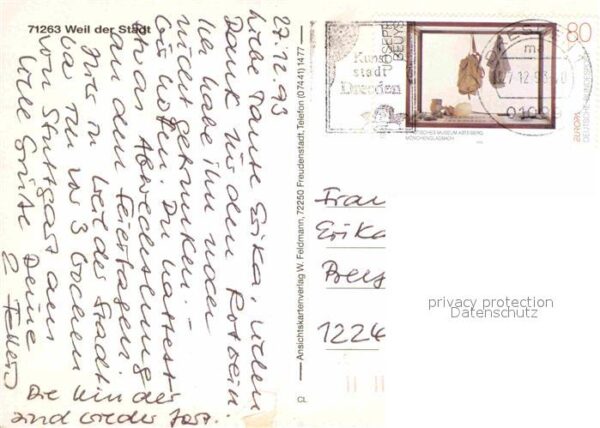 71263 Weil der Stadt
27.12.93
Liebe Tante Erika, vielen
Dank für den Rotwein
Ich habe ihn noch
nicht getrunken.
Wir hoffen, Du hattest
etwas Abwechslung
an den Feiertagen.
Hier in Weil der Stadt
war ich vor 3 Wochen
von Stuttgart aus
Viele Grüße Deine
2
Die Kinder
sind wieder fort.
Ansichtskartenverlag W. Feldmann, 72250 Freudenstadt, Telefon (07441) 1477
CL
JOSEPH
BEUYS
80
Kunst
stadt
Dresden
27.12.93
EUROPA
DEUTSCHE BUNDESPOST
STÄDTISCHES MUSEUM ABTEIBERG
MÖNCHENGLADBACH
Frau
Erika
1224
privacy protection
Datenschutz